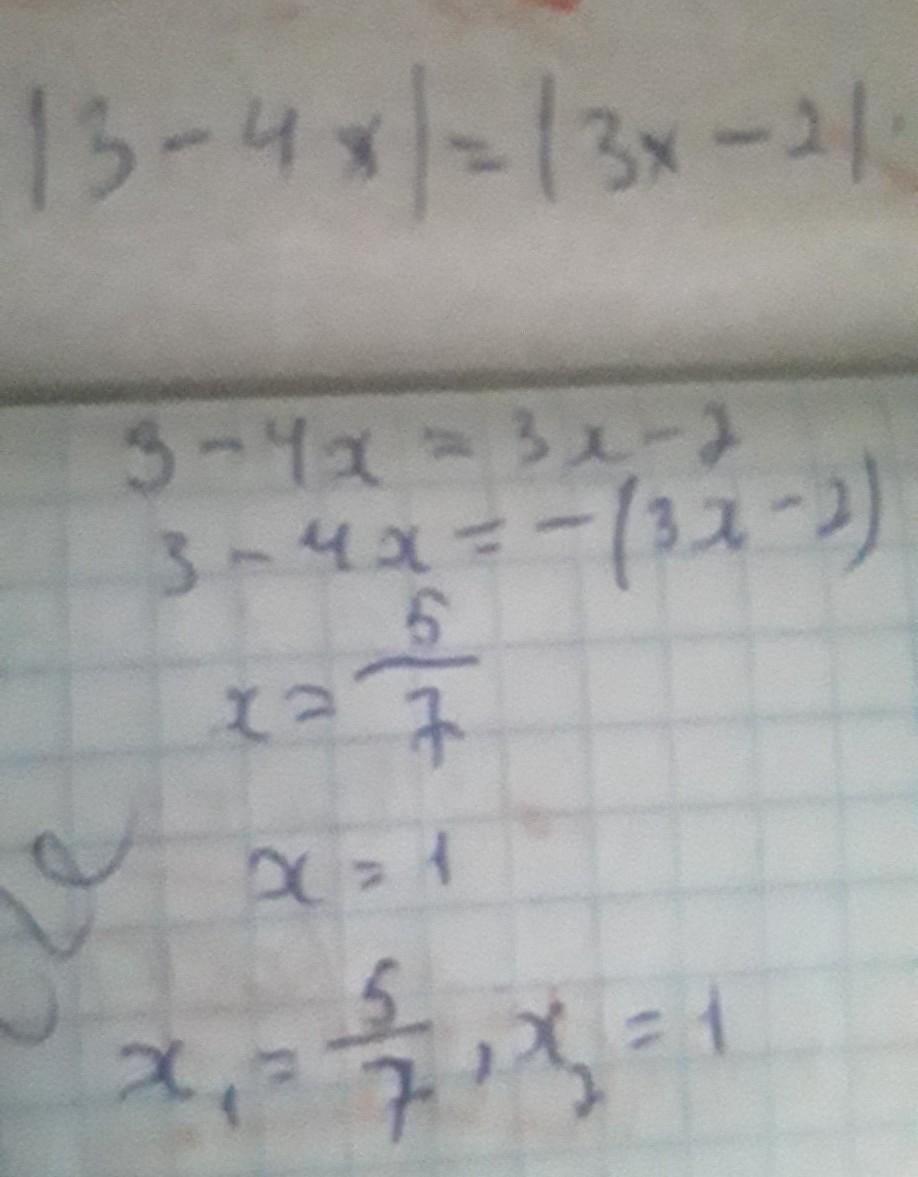 |3-4x|=|3x-2|
3-4x=3x-2
3-4x=-(3x-2)
x=5/7
x=1
x₁=5/7, x₂=1